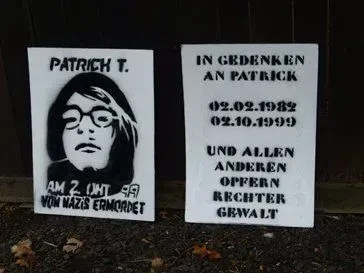 PATRICH T.
AM 2. OKT 99
VON NAZIS ERMORDET
IN GEDENKEN
AN PATRICK
02.02.1982
02.10.1999
UND ALLEN
ANDEREN
OPFERN
RECHTER
GEWALT